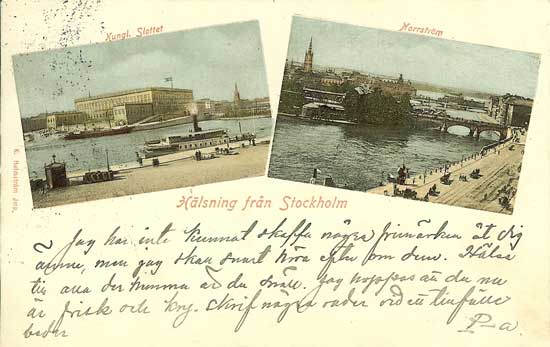 Kungl. Slottet
Norrström
K. Holmström Imp.
Hälsning från Stockholm
Jag har inte kunnat skaffa några frimärken åt dig
ännu, men jag skall snart höra efter om dem. Hälsa
till alla der hemma är du snäll. Jag hoppas att du nu
är frisk och kry. Skrif några rader vid tillfälle
beder
P-a.